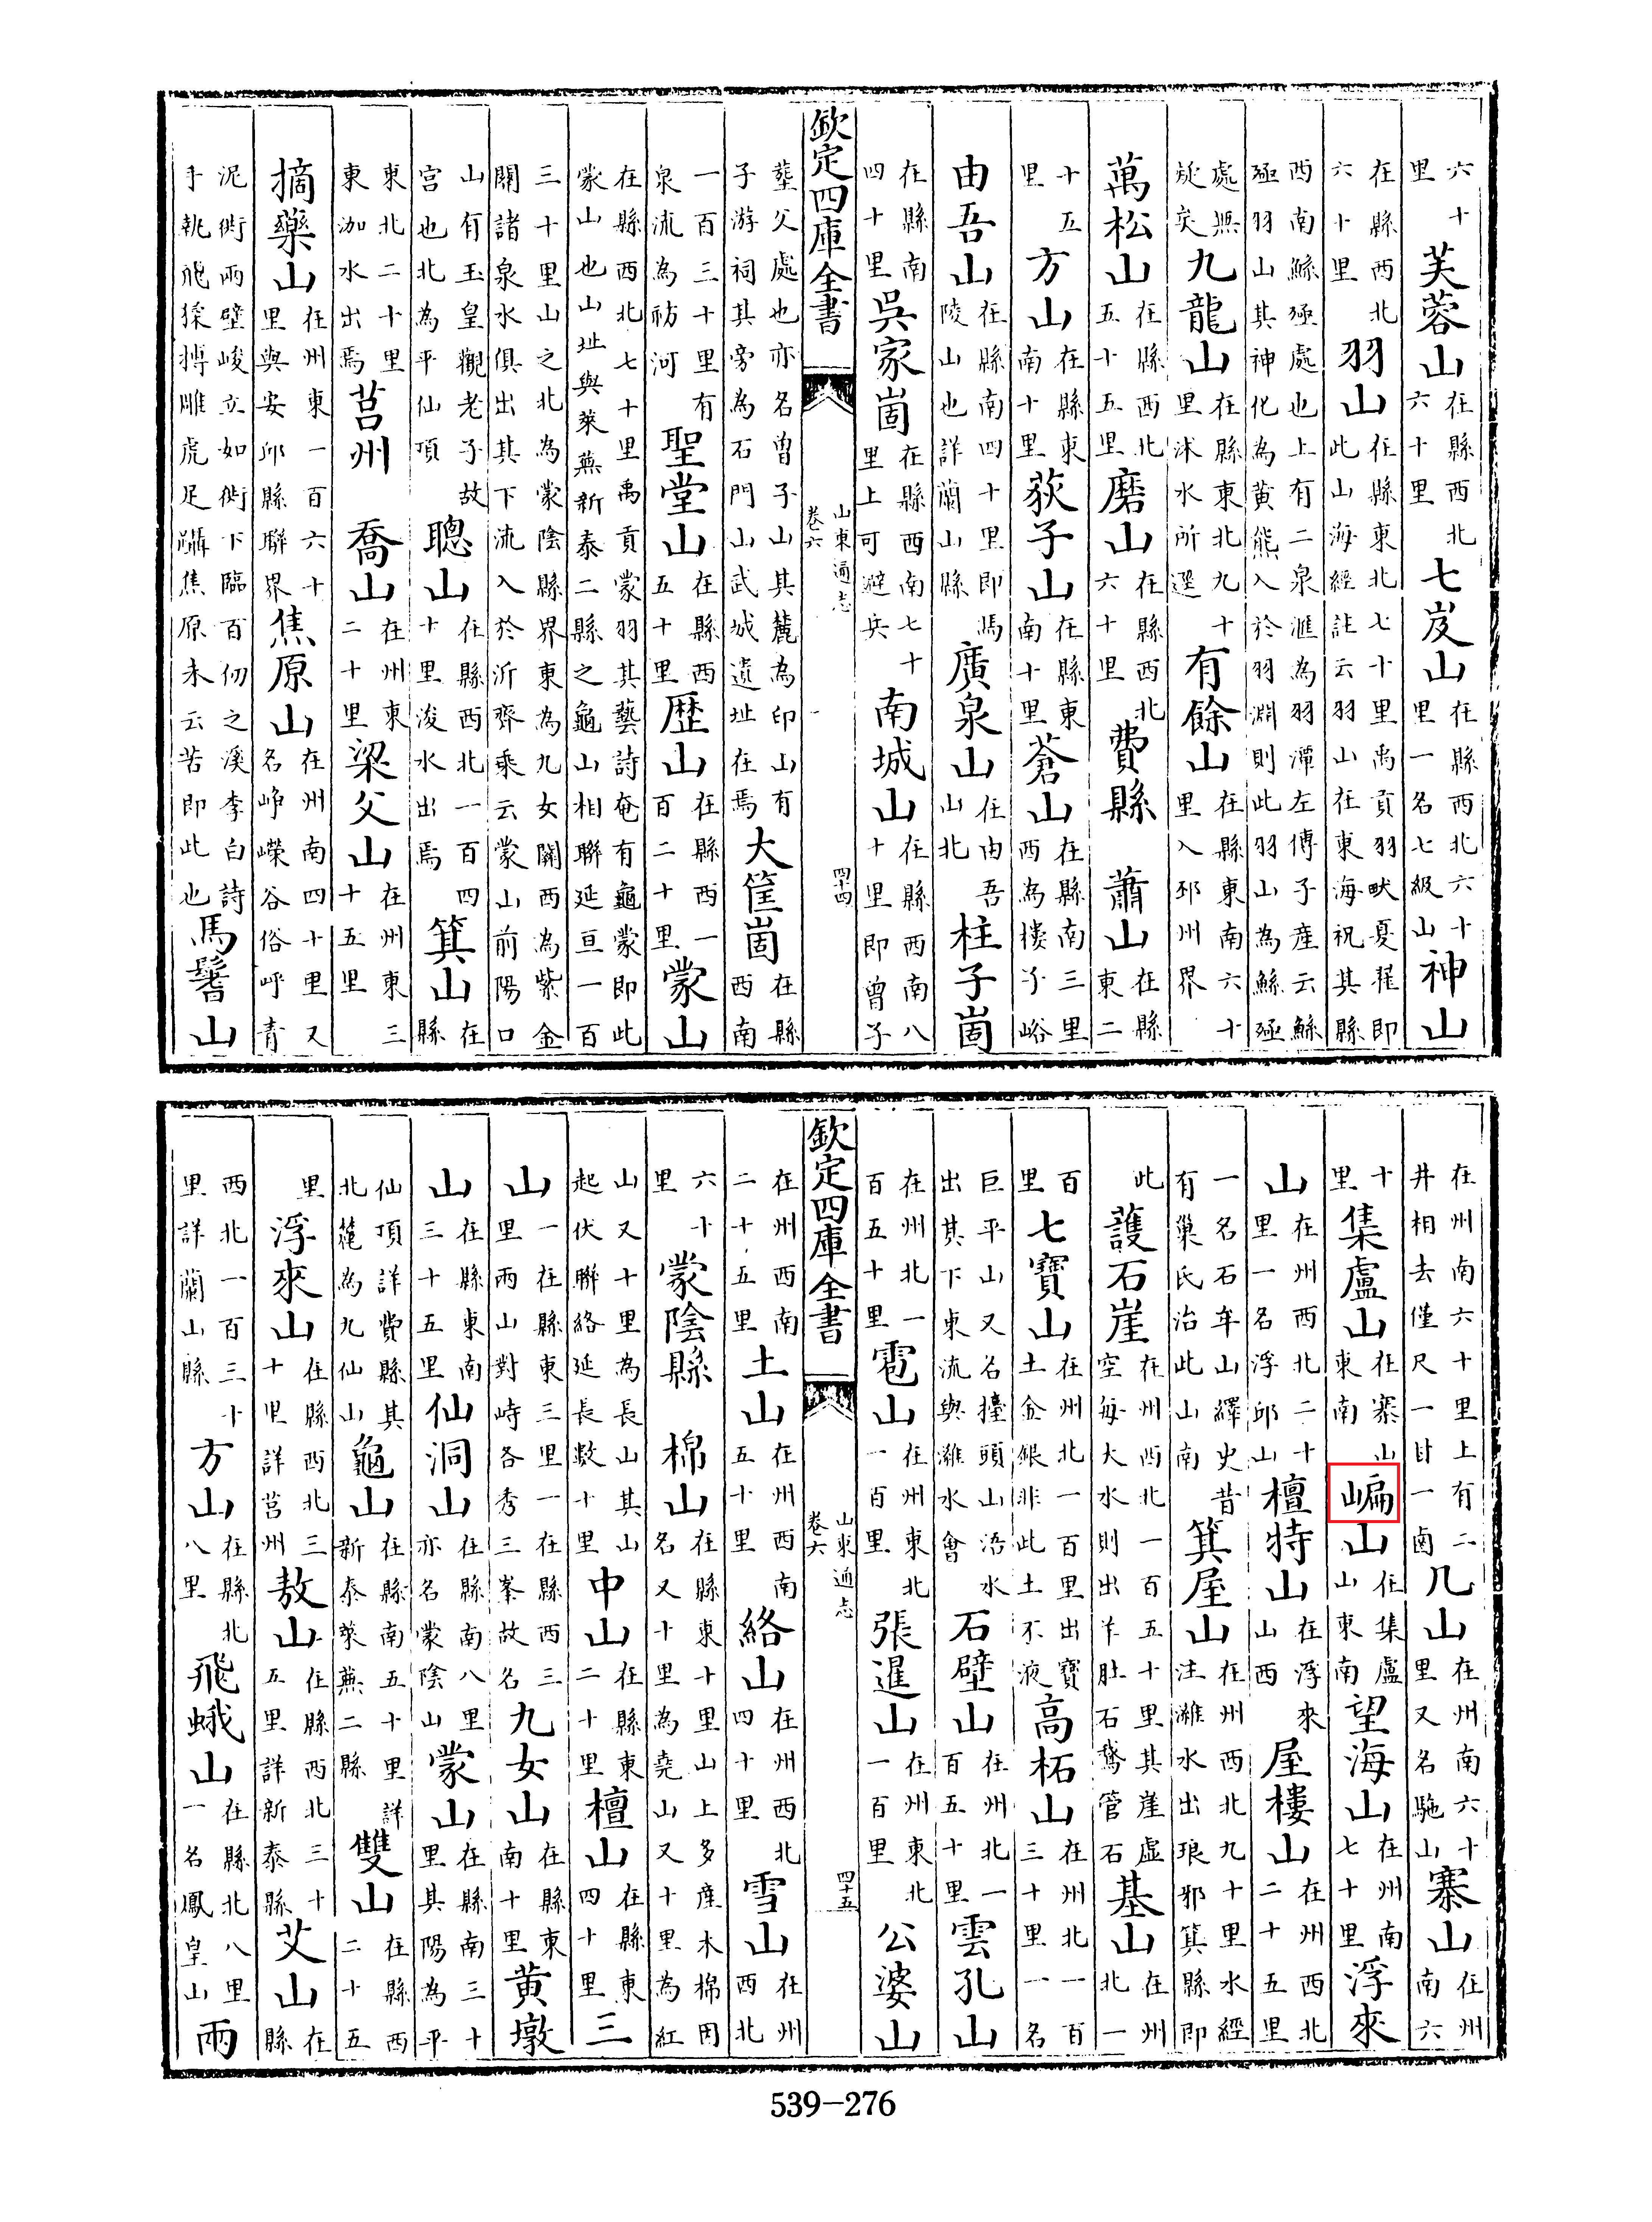 六十里芙蓉山在縣西北六十里七岌山在縣西北六十里一名七級山神山
在縣西北六十里羽山在縣東北七十里禹貢羽畎夏翟即此山海經註云羽山在東海祝其縣
西南鯀殛處也上有二泉滙為羽潭左傳子産云鯀殛羽山其神化為黄熊入於羽淵則此羽山為鯀殛
處無疑矣九龍山在縣東北九十里沭水所選有餘山在縣東南六十里入邳州界
萬松山在縣西北五十五里磨山在縣西北六十里費縣 蕭山在縣東二
十五里方山在縣東南十里荻子山在縣東南十里蒼山在縣南三里西為樓子峪
由吾山在縣南四十里即馮陵山也詳蘭山縣廣泉山在由吾山北柱子崮
在縣南四十里吳家崮在縣西南七十里上可避兵南城山在縣西南八十里即曾子
欽定四庫全書 山東通志 卷六 四十四
葬父處也亦名曾子山其麓為印山有子游祠其旁為石門山武城遺址在焉大筐崮在縣西南
一百三十里有泉流為祊河聖堂山在縣西五十里歴山在縣西一百二十里蒙山
在縣西北七十里禹貢蒙羽其藝詩奄有龜蒙即此蒙山也山址與萊蕪新泰二縣之龜山相聯延亘一百
三十里山之北為蒙陰縣界東為九女關西為紫金關諸泉水俱出其下流入於沂齊乘云蒙山前陽口
山有玉皇觀老子故宮也北為平仙頂聰山在縣西北一百四十里浚水出焉箕山在縣
東北二十里東泇水出焉莒州 喬山在州東二十里梁父山在州東三十五里
摘藥山在州東一百六十里與安邱縣聯界焦原山在州南四十里又名崢嶸谷俗呼青
泥衖兩壁峻立如衖下臨百仞之溪李白詩手執飛猱搏雕虎足躡焦原未云苦即此也馬鬐山
在州南六十里上有二井相去僅尺一甘一鹵几山在州南六十里又名駞山寨山在州南六
十里集盧山在寨山東南㟲山在集盧山東南望海山在州南七十里浮來
山在州西北二十里一名浮邱山檀特山在浮來山西屋樓山在州西北二十五里
一名石牟山繹史昔有巢氏治此山南箕屋山在州西北九十里水經注濰水出琅邪箕縣即
此䕶石崖在州西北一百五十里其崖虛空每大水則出羊肚石鵞管石基山在州北一
百里七寶山在州北一百里出寶土金銀非此土不液高柘山在州北一百三十里一名
巨平山又名擡頭山浯水出其下東流與濰水會石壁山在州北一百五十里雲孔山
在州北一百五十里雹山在州東北一百里張暹山在州東北一百里公婆山
欽定四庫全書 山東通志 卷六 四十五
在州西南二十五里土山在州西南五十里絡山在州西北四十里雪山在州西北
六十里蒙陰縣 棉山在縣東十里山上多産木棉因名又十里為堯山又十里為紅
山又十里為長山其山起伏聯絡延長數十里中山在縣東二十里檀山在縣東四十里三
山一在縣東三里一在縣西三里兩山對峙各秀三峯故名九女山在縣東南十里黄墩
山在縣東南三十五里仙洞山在縣南八里亦名蒙陰山蒙山在縣南三十里其陽為平
仙頂詳費縣其北麓為九仙山龜山在縣南五十里詳新泰萊蕪二縣雙山在縣西二十五
里浮來山在縣西北三十里詳莒州敖山在縣西北三十五里詳新泰縣艾山在縣
西北一百三十里詳蘭山縣方山在縣北八里飛蛾山在縣北八里一名鳳皇山兩
539-276